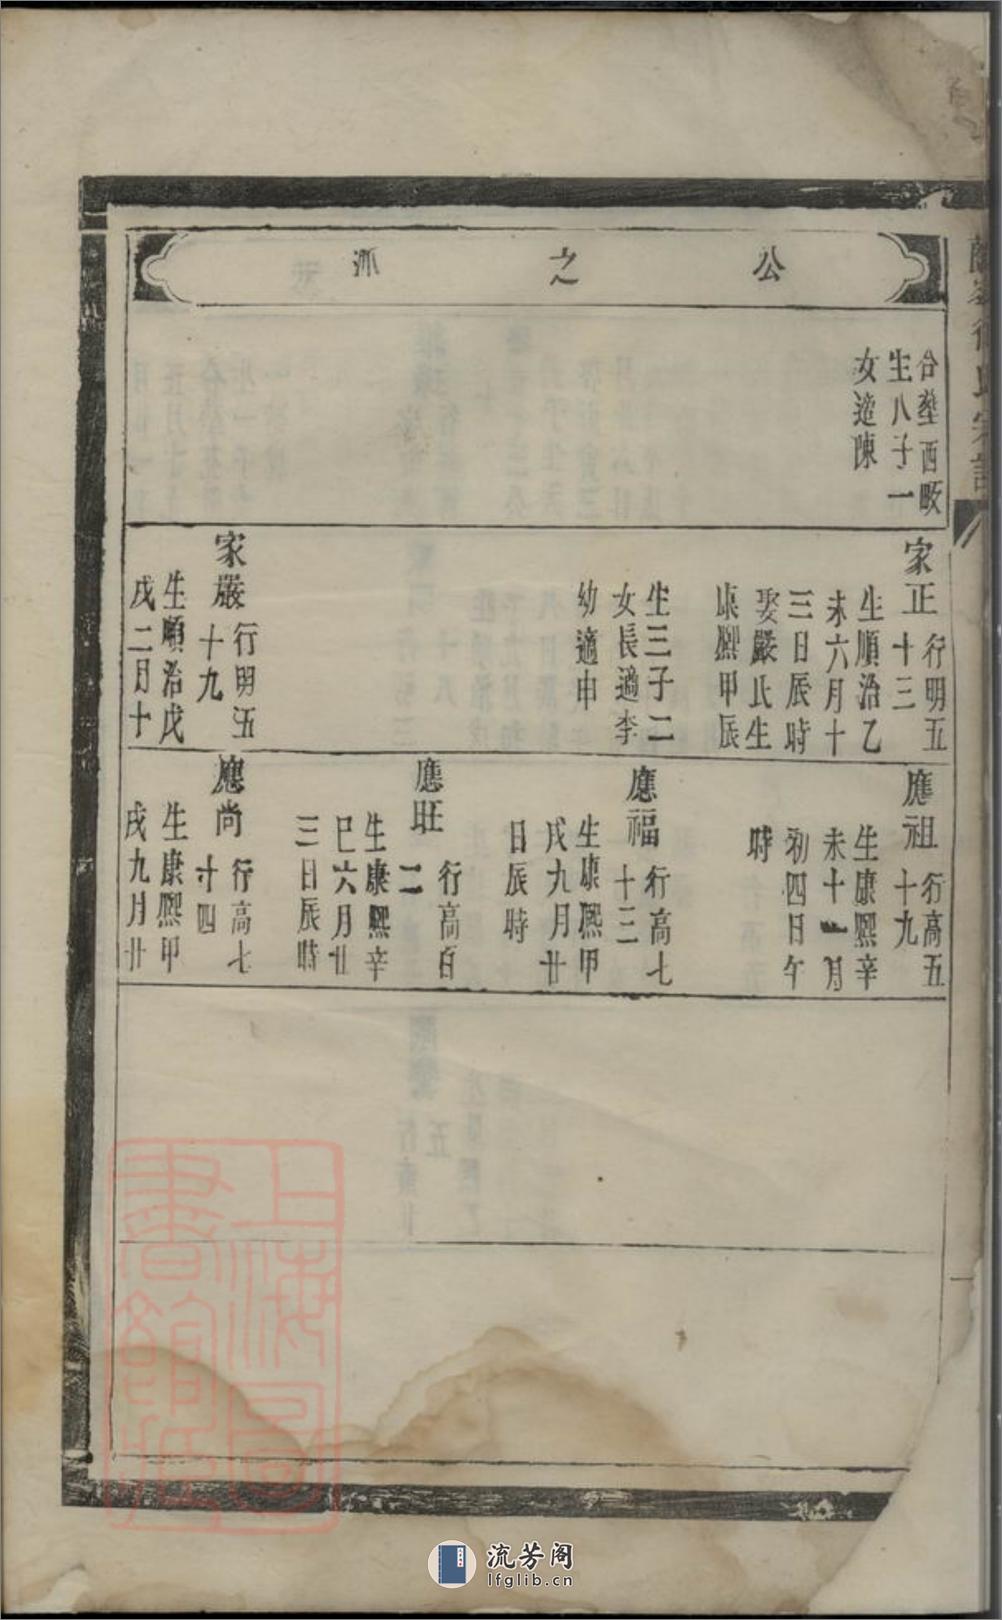 公之派
合塟西畈
生八子一
女適陳
家正行明五
十三
生順治乙
未六月十
三日辰時
娶嚴氏生
康熈甲辰
生三子二
女長適李
幼適申
家嚴行明五
十九
生順治戊
戌二月十
應祖行高五
十九
生康熈辛
未十一月
初四日午
時
應福行高七
十三
生康熈甲
戌九月廿
日辰時
應旺行高百
二
生康熈辛
巳六月廿
三日辰時
應尚行高七
十四
生康熈甲
戌九月廿
上海圖
書館藏
流芳阁
lfglib.cn